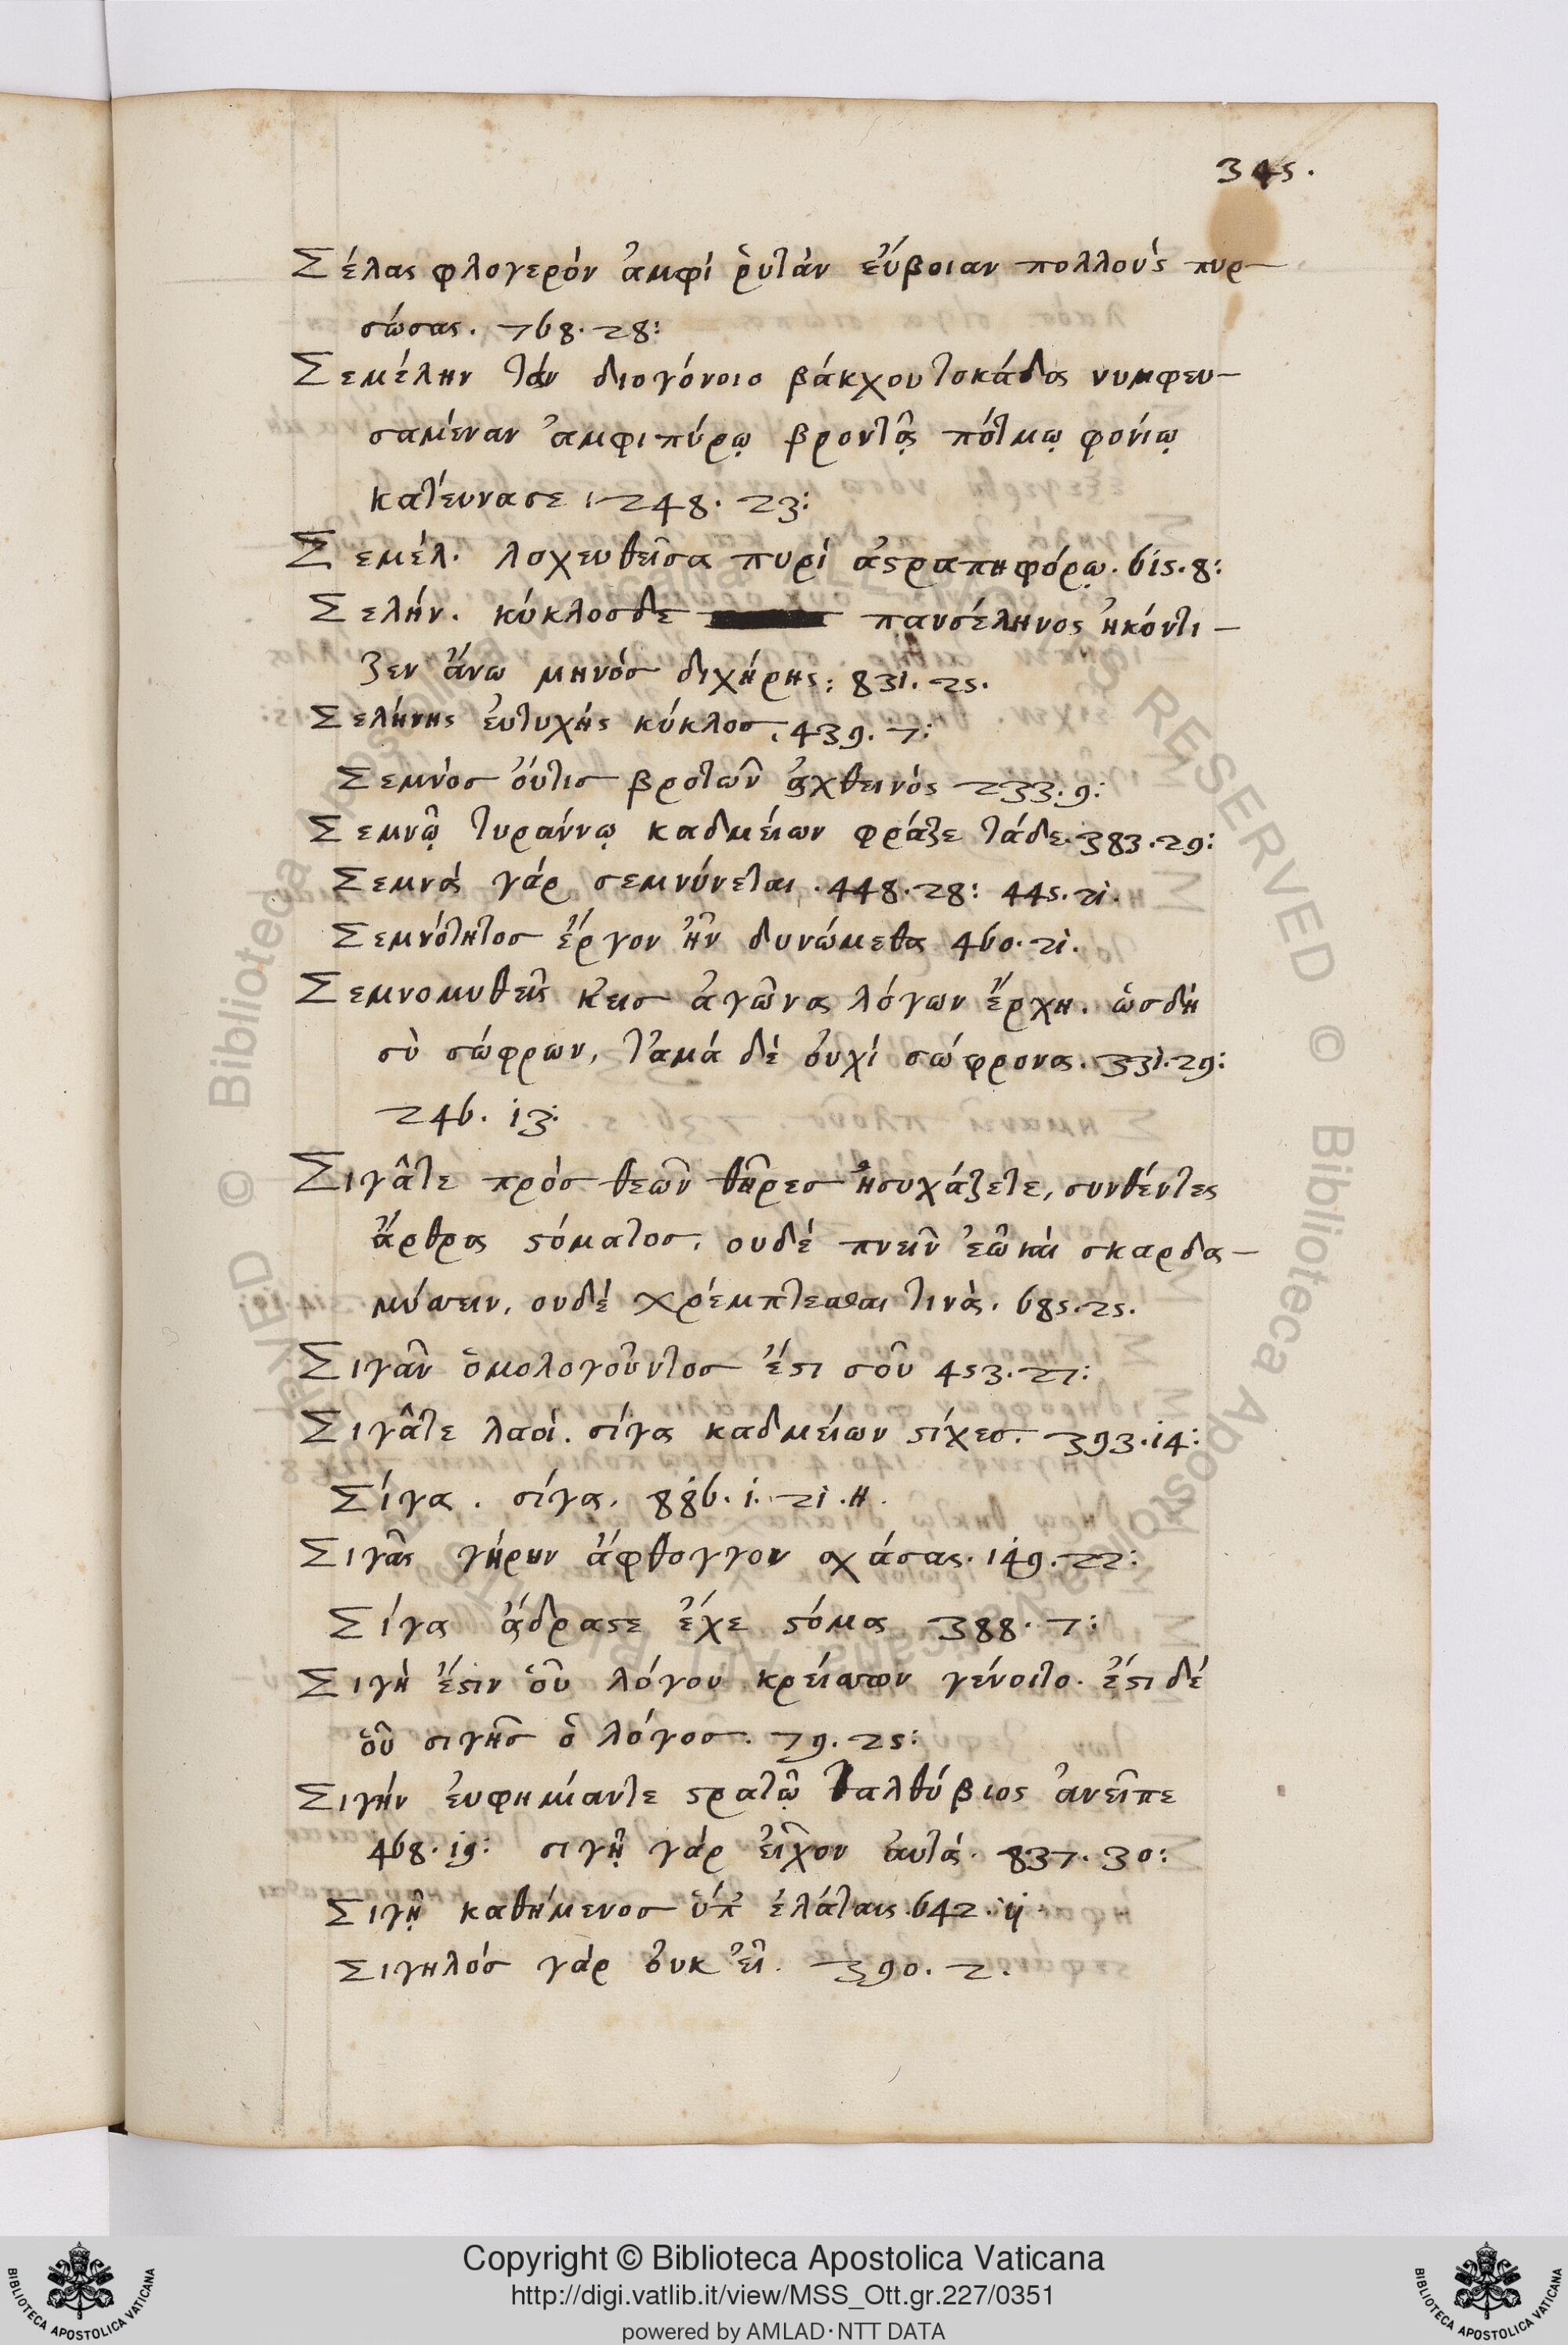 345.
Σέλας φλογερόν ἀμφί ῥυτάν εὔβοιαν πολλούς πυρ-
σώσας. 768. 28:
Σεμέλην τάν διογόνοιο βάκχου τοκάδα νυμφευ-
σαμέναν ἀμφιπύρῳ βροντᾷ πότμῳ φονίῳ
κατεύνασε. 248. 23:
Σεμέλ. λοχευθεῖσα πυρί ἀστραπηφόρῳ. 615. 8:
Σελήν. κύκλοσδε πανσέληνος ἠκόντι-
ζεν ἄνω μηνόσ διχήρης: 831. 25.
Σελήνης ἐυτυχής κύκλοσ. 439. 7:
Σεμνόσ ὄυτισ βροτῶν ἀχθεινός 233. 9:
Σεμνῷ τυράννῳ καδμείων φράζε τάδε. 383. 29:
Σεμνά γάρ σεμνύνεται. 448. 28: 445. 21.
Σεμνότητοσ ἔργον ἦν δυνώμεθα 460. 21.
Σεμνομυθεῖς κ'εισ ἀγῶνας λόγων ἔρχη. ὡσδή
σὺ σώφρων, τ'αμά δέ ὀυχί σώφρονα. 331. 29:
246. 13:
Σιγᾶτε πρόσ θεῶν θῆρεσ ἡσυχάζετε, συνθέντες
ἄρθρα στόματοσ, ουδέ πνεῖν ἐῶ καί σκαρδα-
μύσσειν, ουδέ χρέμπτεσθαι τινά. 685. 25.
Σιγᾶν ὁμολογοῦντοσ ἔστι σοῦ 453. 27:
Σιγᾶτε λαοί. σίγα καδμείων στίχεσ. 393. 14:
Σίγα. σίγα. 886. 1. 21. η.
Σιγᾶς γῆρυν ἄφθογγον σχάσας. 149. 22:
Σίγα ἄδραστε ἔχε στόμα 388. 7:
Σιγή ἔστιν ὁῦ λόγου κρείσσων γένοιτο. ἔστι δέ
ὁῦ σιγῆσ ὁ λόγοσ. 79. 25:
Σιγήν ἐυφημίαντε στρατῷ ταλθύβιος ἀνεῖπε
468. 19: σιγῇ γάρ εἶχον ἀυτά. 837. 30:
Σιγῇ καθήμενοσ ὑπ' ἐλάταις. 642. 11.
Σιγηλόσ γάρ ὀυκ εἶ. 390. 2.
Copyright © Biblioteca Apostolica Vaticana
http://digi.vatlib.it/view/MSS_Ott.gr.227/0351
powered by AMLAD·NTT DATA